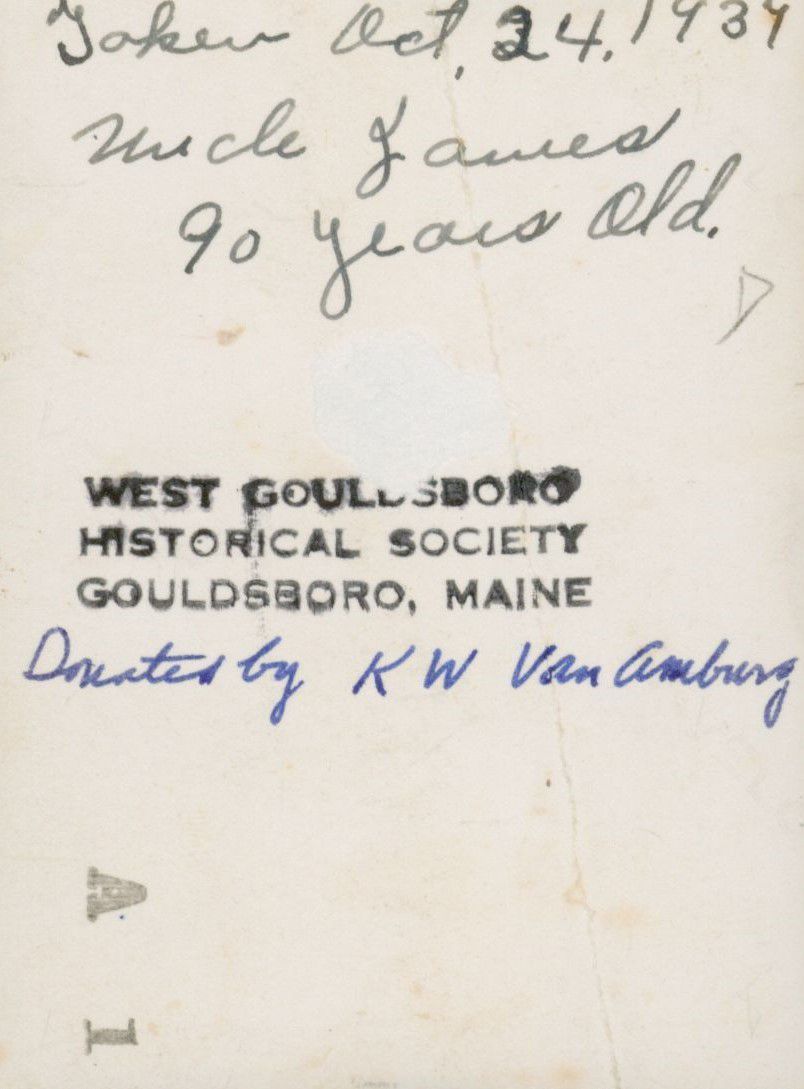 Taken Oct, 24, 1939
Uncle James
90 years Old.
WEST GOULDSBORO
HISTORICAL SOCIETY
GOULDSBORO, MAINE
Donated by K W Van Amburg
A
I